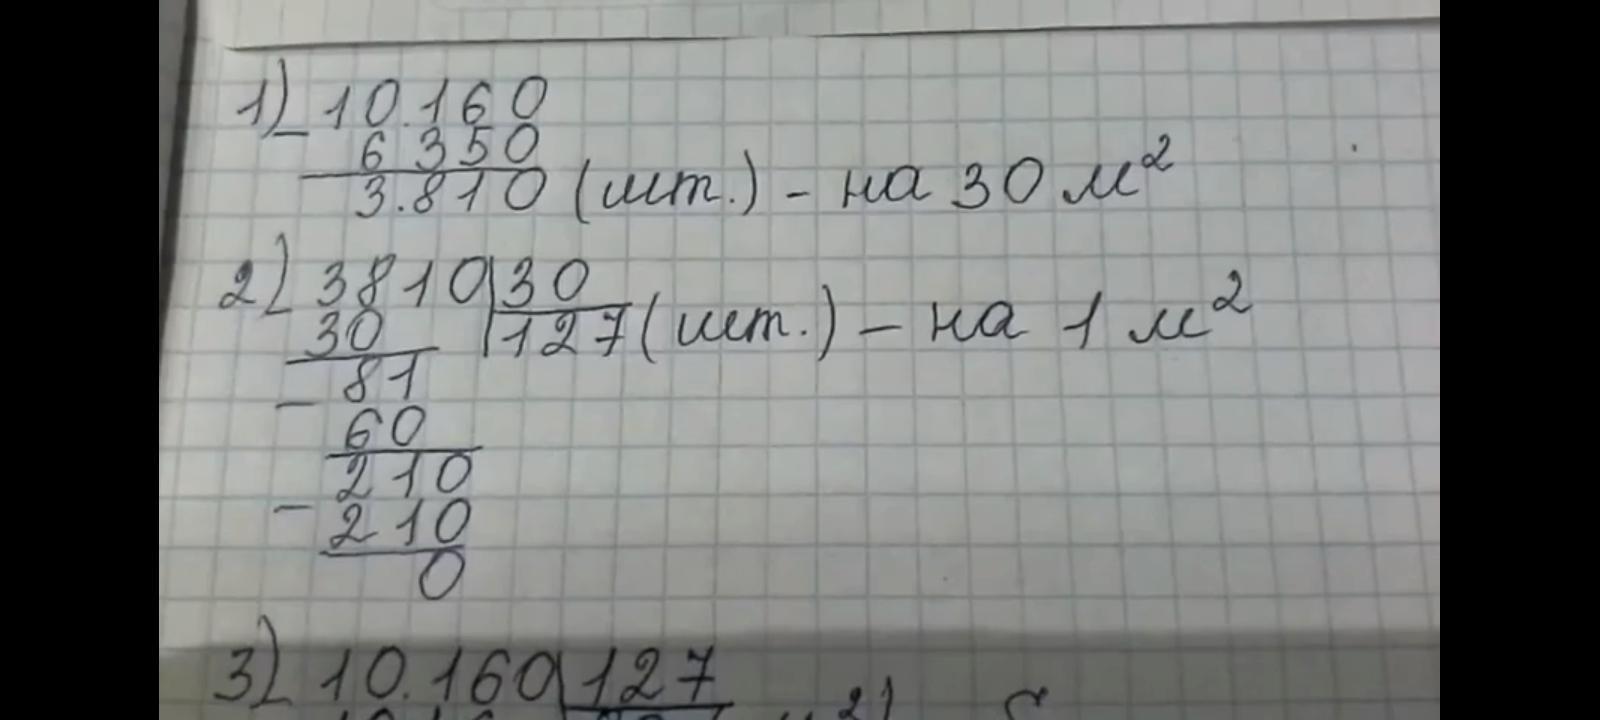 1) 10.160
- 6350
3.810 (шт.) - на 30 м²
2) 3810 30
30 127 (шт.) - на 1 м²
81
- 60
210
- 210
0
3) 10.160 127